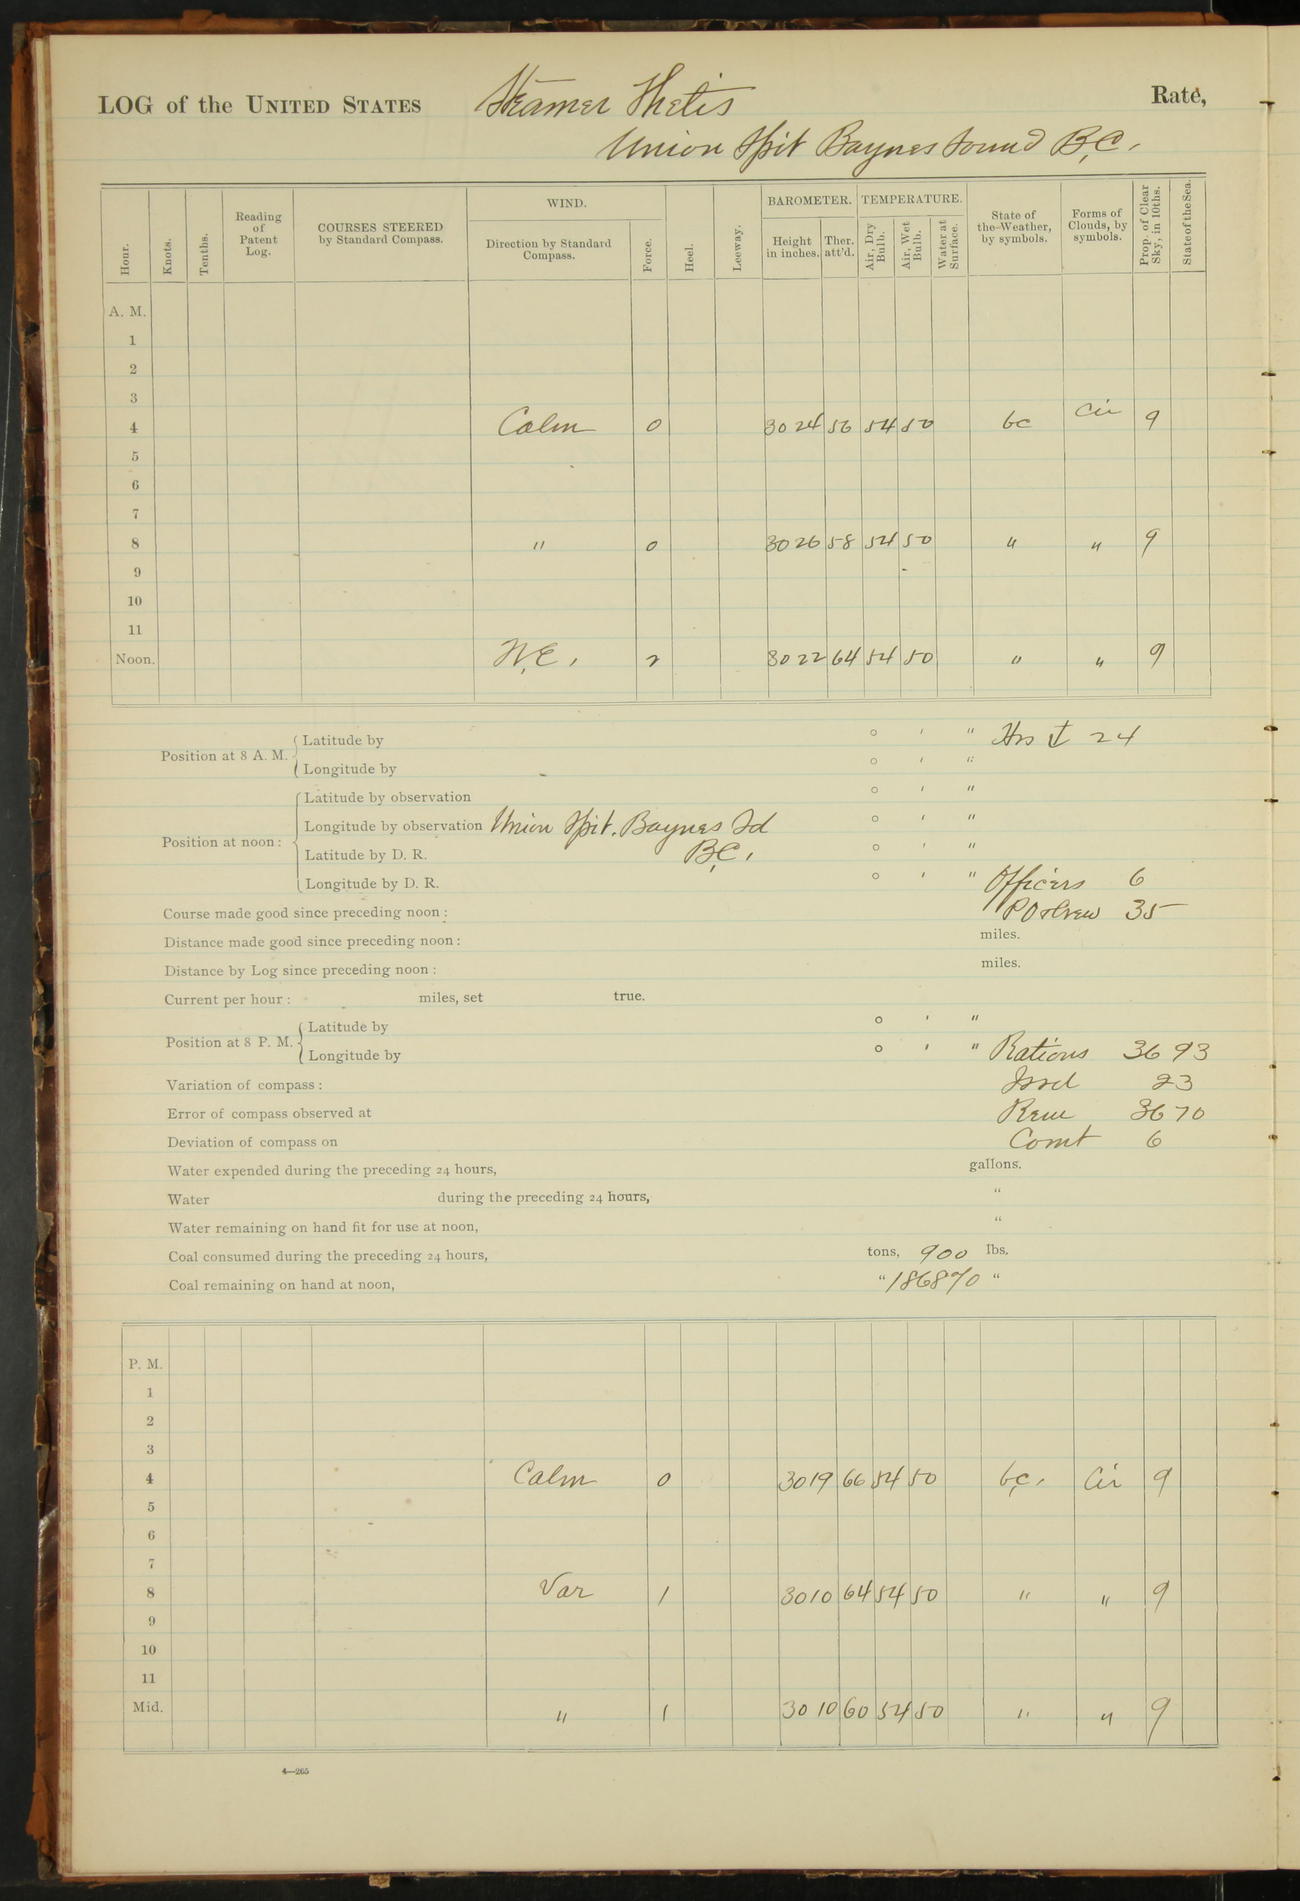 LOG of the UNITED STATES Steamer Thetis Rate,
Union Spit Baynes Sound B.C.
Hour. Knots. Tenths. Reading of Patent Log. COURSES STEERED by Standard Compass. WIND. Direction by Standard Compass. Force. Heel. Leeway. BAROMETER. Height in inches. Ther. att'd. TEMPERATURE. Air, Dry Bulb. Air, Wet Bulb. Water at Surface. State of the Weather, by symbols. Forms of Clouds, by symbols. Prop. of Clear Sky, in 10ths. State of the Sea.
A. M.
1
2
3
4 Calm 0 30 24 56 54 50 bc Cir 9
5
6
7
8 " 0 30 26 58 54 50 " " 9
9
10
11
Noon. N.E. 2 30 22 64 54 50 " " 9
Position at 8 A. M. Latitude by ° ' " Hrs 24
Longitude by ° ' "
Position at noon: Latitude by observation ° ' "
Longitude by observation Union Spit. Baynes Sd ° ' "
Latitude by D. R. B.C. ° ' "
Longitude by D. R. ° ' " Officers 6
Course made good since preceding noon: PO & Crew 35
Distance made good since preceding noon: miles.
Distance by Log since preceding noon: miles.
Current per hour: miles, set true.
Position at 8 P. M. Latitude by ° ' "
Longitude by ° ' " Rations 3693
Variation of compass: Issd 23
Error of compass observed at Rem 3670
Deviation of compass on Comt 6
Water expended during the preceding 24 hours, gallons.
Water during the preceding 24 hours, "
Water remaining on hand fit for use at noon, "
Coal consumed during the preceding 24 hours, tons, 900 lbs.
Coal remaining on hand at noon, " 186870 "
P. M.
1
2
3
4 Calm 0 30 19 66 54 50 b.c. Cir 9
5
6
7
8 Var 1 30 10 64 54 50 " " 9
9
10
11
Mid. " 1 30 10 60 54 50 " " 9
4—265